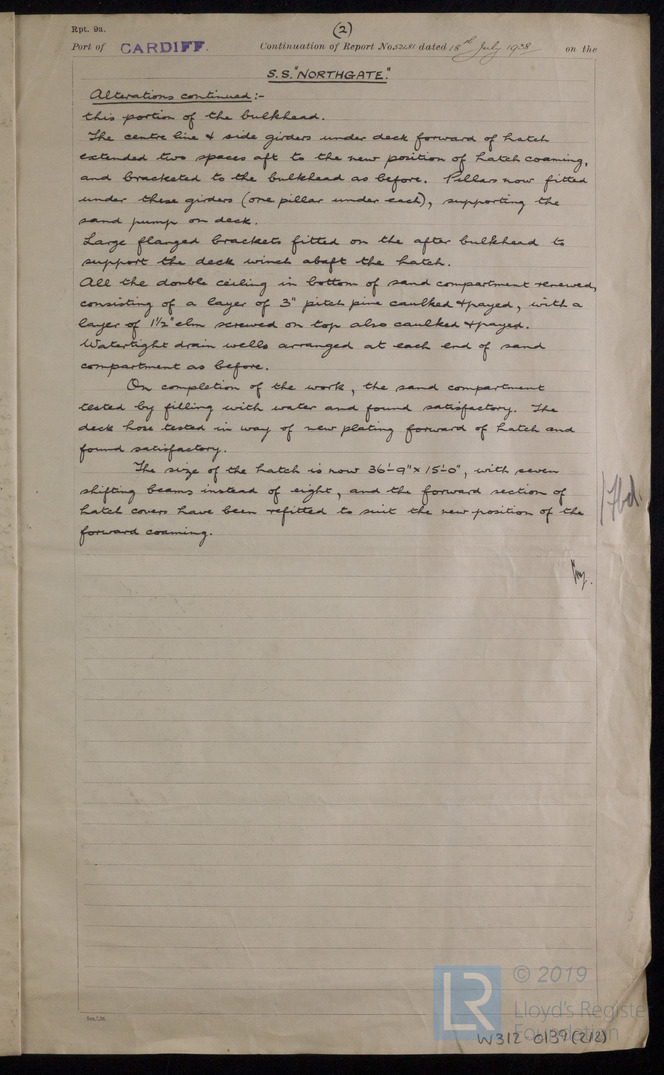 Rpt. 9a.
(2)
Port of CARDIFF. Continuation of Report No. 52681 dated 18th July 1938 on the
S.S. "NORTHGATE".
Alterations continued:-
this portion of the bulkhead.
The centre line & side girders under deck forward of hatch
extended two spaces aft to the new position of hatch coaming,
and bracketed to the bulkhead as before. Pillars now fitted
under these girders (one pillar under each), supporting the
sand pump on deck.
Large flanged brackets fitted on the after bulkhead to
support the deck winch abaft the hatch.
All the double ceiling in bottom of sand compartment renewed,
consisting of a layer of 3" pitch pine caulked & payed, with a
layer of 1½" elm screwed on top also caulked & payed.
Watertight drain wells arranged at each end of sand
compartment as before.
On completion of the work, the sand compartment
tested by filling with water and found satisfactory. The
deck hose tested in way of new plating forward of hatch and
found satisfactory.
The size of the hatch is now 36'-9" x 15'-0", with seven
shifting beams instead of eight, and the forward section of
hatch covers have been refitted to suit the new position of the
forward coaming.
LR
© 2019
Lloyd's Registe
Foundation
W312-0139 (2/2)